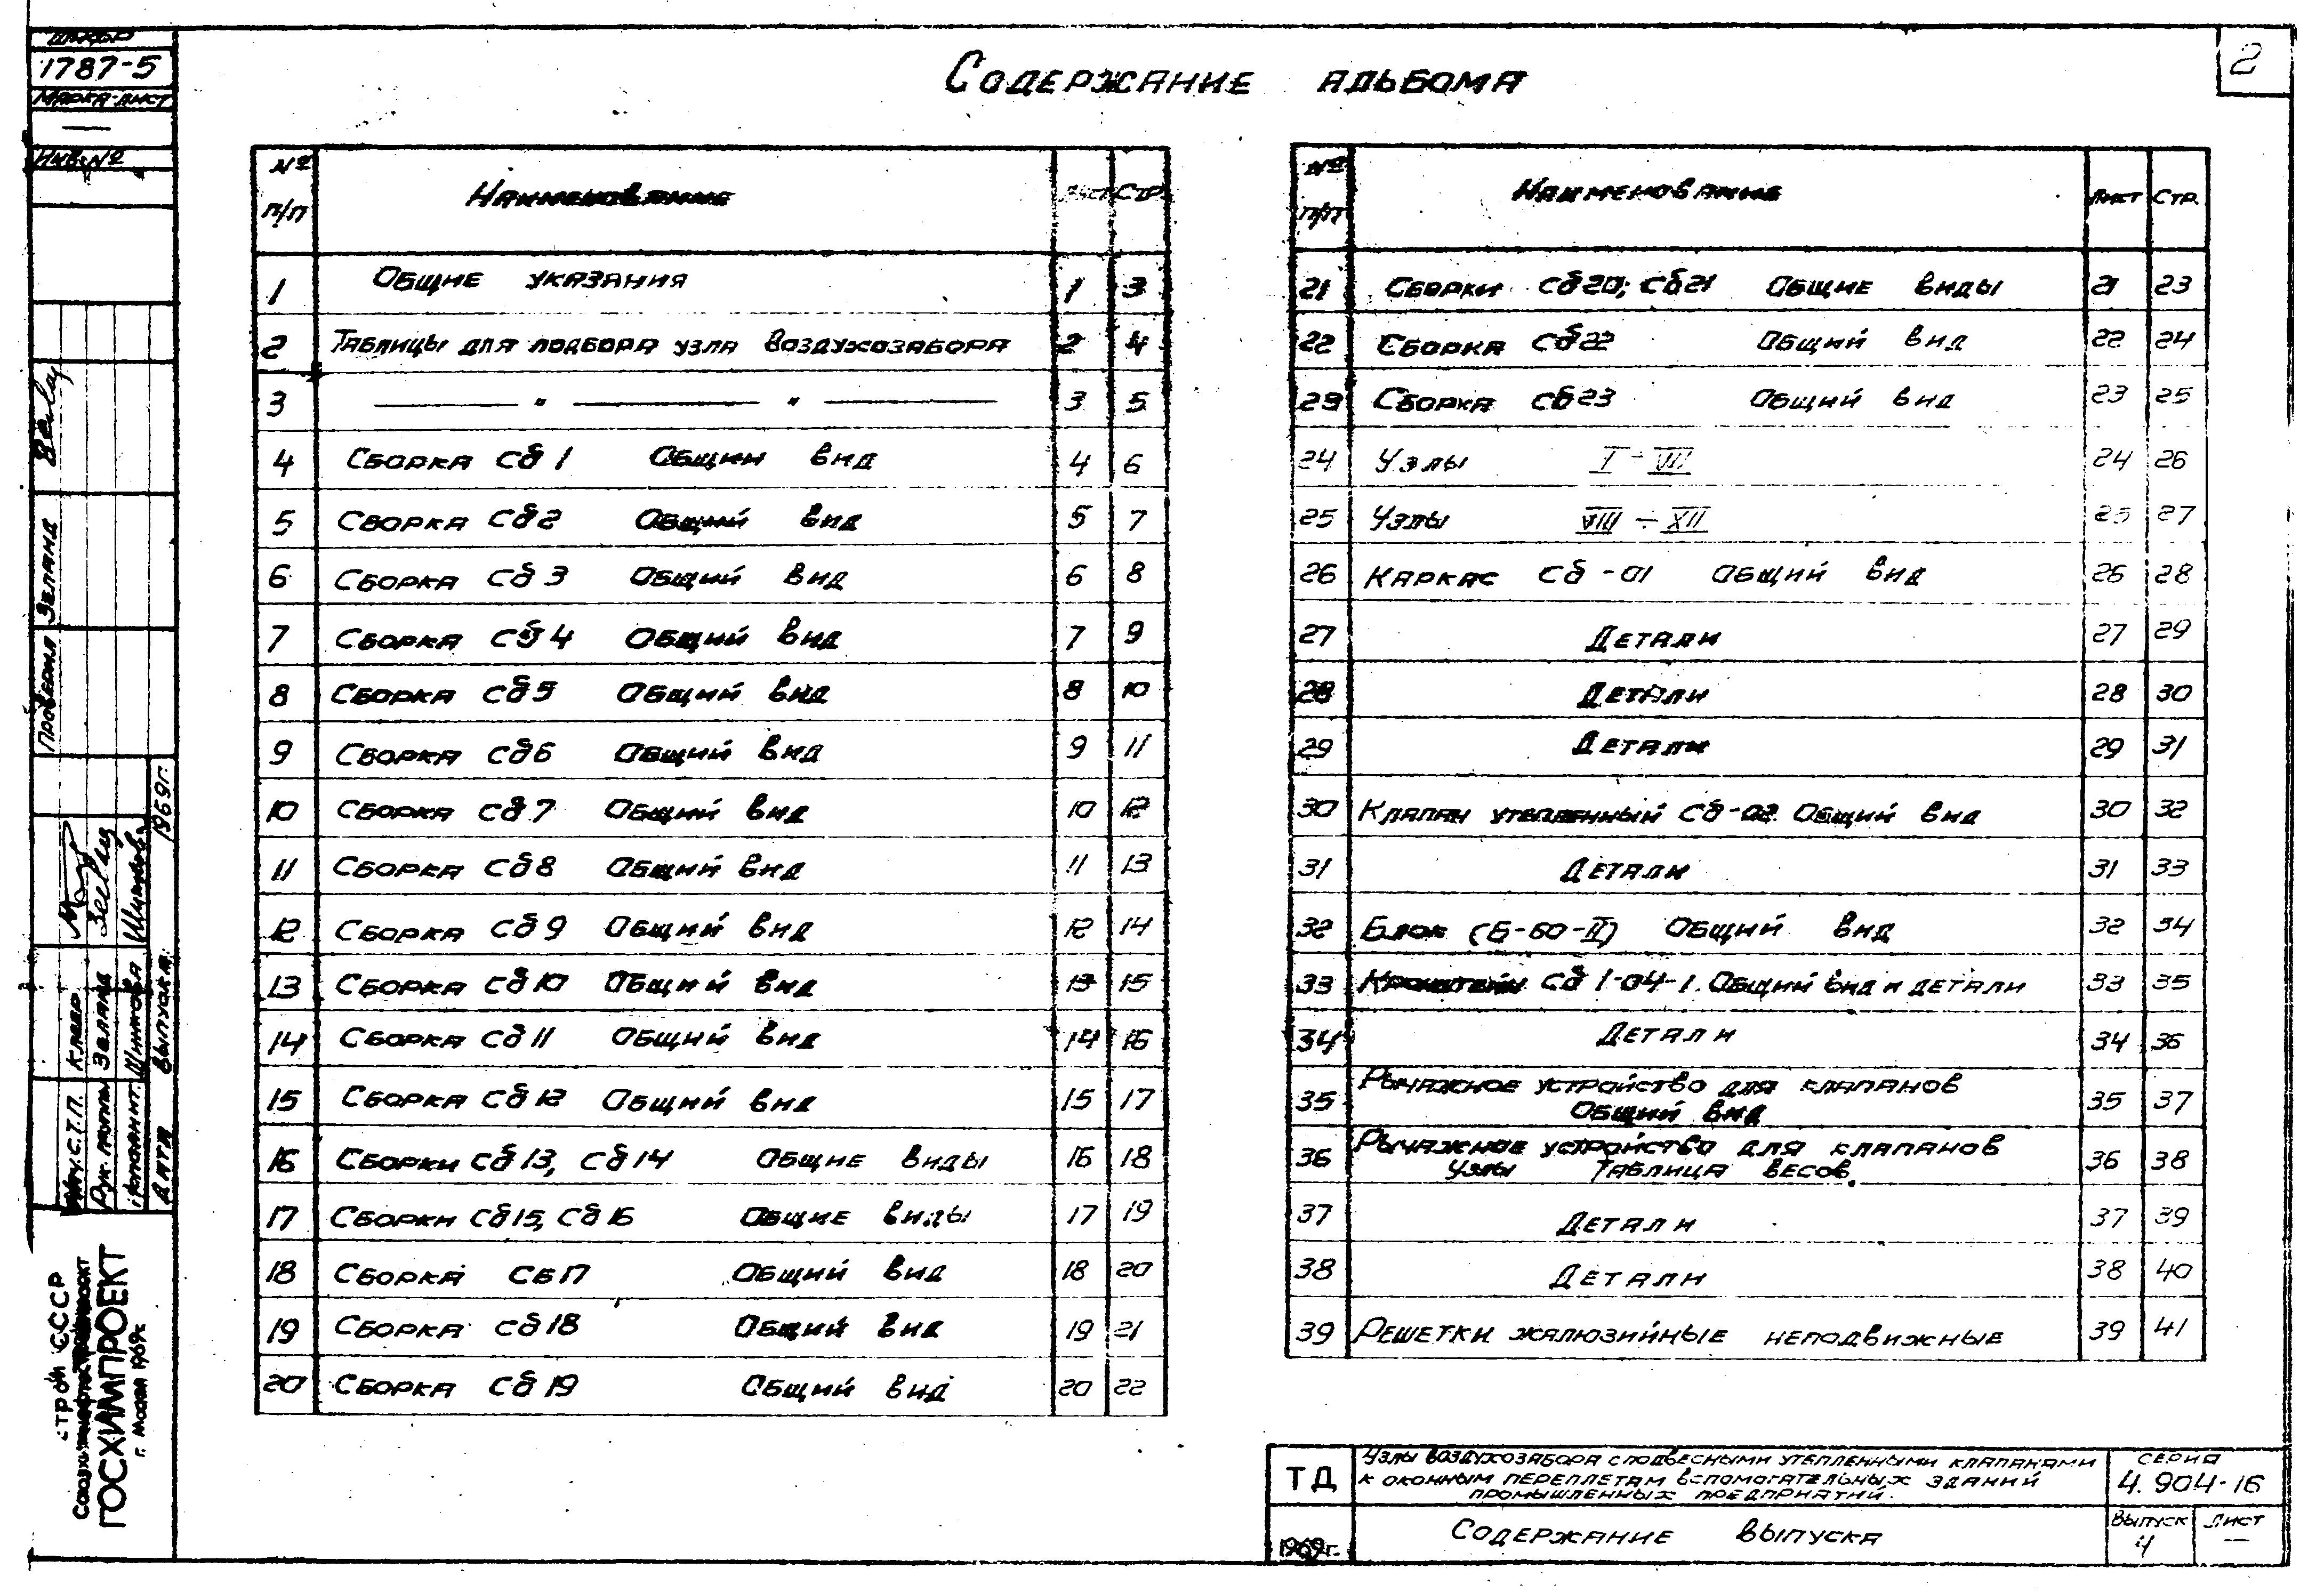 Шифр
1787-5
Марка-лист
—
Инв. №
2
Содержание альбома
№ п/п Наименование Лист Стр.
1 Общие указания 1 3
2 Таблицы для подбора узла воздухозабора 2 4
3 — " — " — 3 5
4 Сборка Сб 1 Общий вид 4 6
5 Сборка Сб 2 Общий вид 5 7
6 Сборка Сб 3 Общий вид 6 8
7 Сборка Сб 4 Общий вид 7 9
8 Сборка Сб 5 Общий вид 8 10
9 Сборка Сб 6 Общий вид 9 11
10 Сборка Сб 7 Общий вид 10 12
11 Сборка Сб 8 Общий вид 11 13
12 Сборка Сб 9 Общий вид 12 14
13 Сборка Сб 10 Общий вид 13 15
14 Сборка Сб 11 Общий вид 14 16
15 Сборка Сб 12 Общий вид 15 17
16 Сборки Сб 13, Сб 14 Общие виды 16 18
17 Сборки Сб 15, Сб 16 Общие виды 17 19
18 Сборка Сб 17 Общий вид 18 20
19 Сборка Сб 18 Общий вид 19 21
20 Сборка Сб 19 Общий вид 20 22
№ п/п Наименование Лист Стр.
21 Сборки Сб 20; Сб 21 Общие виды 21 23
22 Сборка Сб 22 Общий вид 22 24
23 Сборка Сб 23 Общий вид 23 25
24 Узлы I ÷ VII 24 26
25 Узлы VIII ÷ XII 25 27
26 Каркас Сб-01 Общий вид 26 28
27 Детали 27 29
28 Детали 28 30
29 Детали 29 31
30 Клапан утепленный Сб-02 Общий вид 30 32
31 Детали 31 33
32 Блок (Б-60-II) Общий вид 32 34
33 Кронштейн Сб 1-04-1. Общий вид и детали 33 35
34 Детали 34 36
35 Рычажное устройство для клапанов
Общий вид 35 37
36 Рычажное устройство для клапанов
Узлы Таблица весов. 36 38
37 Детали 37 39
38 Детали 38 40
39 Решетки жалюзийные неподвижные 39 41
Проверил Зеланд
С.Т.П. Клевер
Рук. группы Зеланд
Исполнит. Шинкова
Дата выпуска: 1969г.
строй СССР
ГОСХИМПРОЕКТ
г. Москва 1969г.
ТД
1969г.
Узлы воздухозабора с подвесными утепленными клапанами
к оконным переплетам вспомогательных зданий
промышленных предприятий.
Серия
4.904-16
Содержание выпуска
Выпуск
4
Лист
—